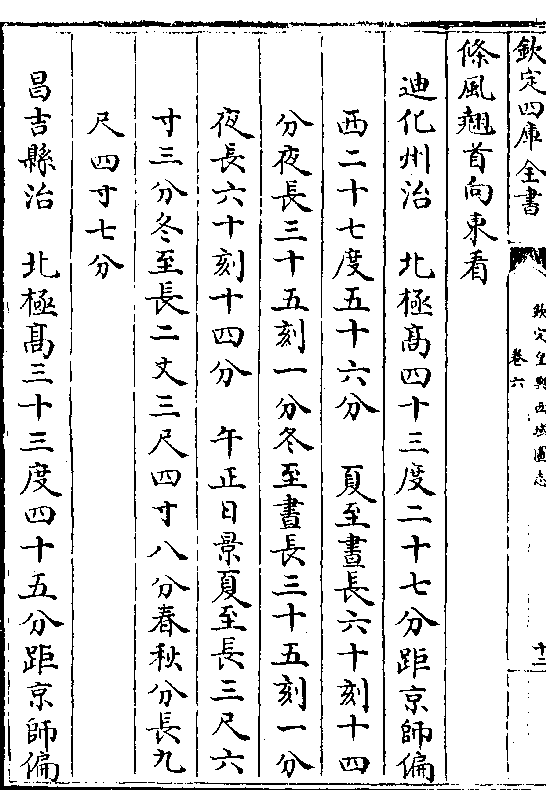 欽定四庫全書
欽定皇輿西域圖志
卷六
十二
條風翹首向東看
迪化州治　北極髙四十三度二十七分距京師偏
西二十七度五十六分　夏至晝長六十刻十四
分夜長三十五刻一分冬至晝長三十五刻一分
夜長六十刻十四分　午正日景夏至長三尺六
寸三分冬至長二丈三尺四寸八分春秋分長九
尺四寸七分
昌吉縣治　北極髙三十三度四十五分距京師偏